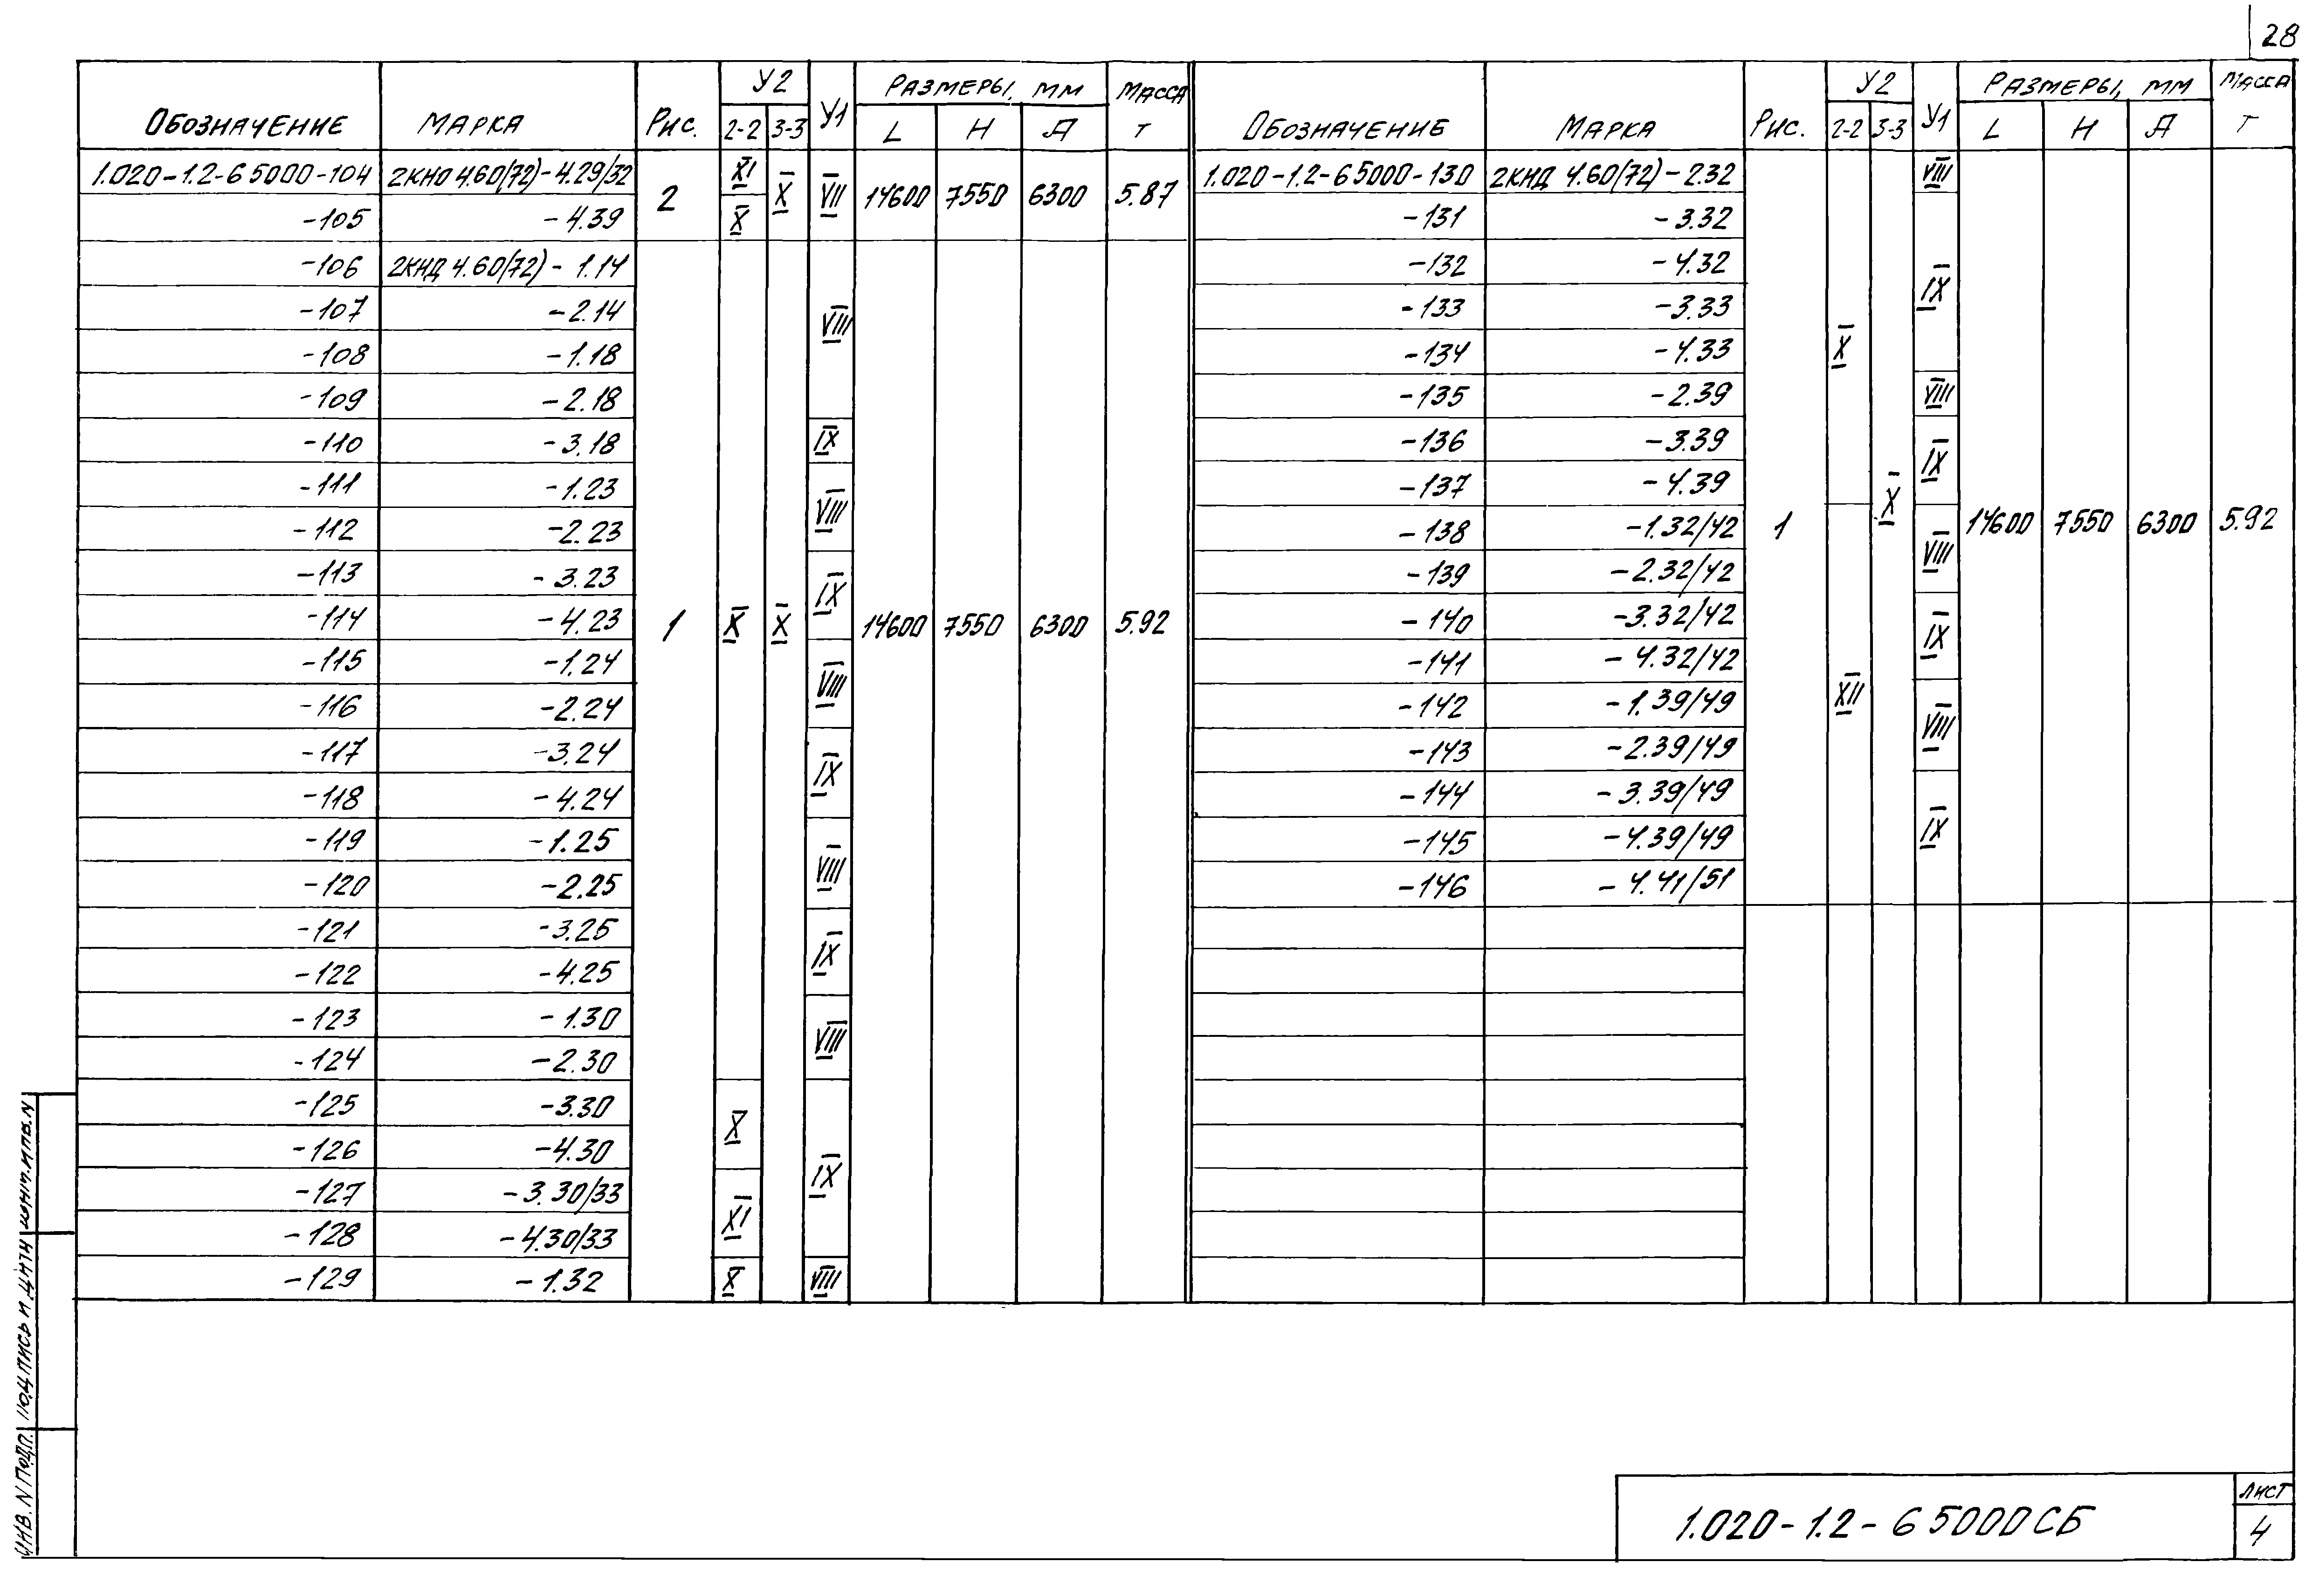 28
ОБОЗНАЧЕНИЕ МАРКА РИС. У2 У1 РАЗМЕРЫ, ММ МАССА ОБОЗНАЧЕНИЕ МАРКА РИС. У2 У1 РАЗМЕРЫ, ММ МАССА
2-2 3-3 L H A Т 2-2 3-3 L H A Т
1.020-1.2-6 5000-104 2КНО 4.60(72)-4.29/32 2 XI X VII 14600 7550 6300 5.87 1.020-1.2-6 5000-130 2КНД 4.60(72)-2.32 VIII
-105 -4.39 X -131 -3.32
-106 2КНД 4.60(72)-1.14 -132 -4.32 IX
-107 -2.14 VIII -133 -3.33
-108 -1.18 -134 -4.33 X
-109 -2.18 -135 -2.39 VIII
-110 -3.18 IX -136 -3.39 IX
-111 -1.23 VIII -137 -4.39 X
-112 -2.23 -138 -1.32/42 1 VIII 14600 7550 6300 5.92
-113 -3.23 IX -139 -2.32/42
-114 -4.23 1 X X 14600 7550 6300 5.92 -140 -3.32/42 IX
-115 -1.24 VIII -141 -4.32/42
-116 -2.24 -142 -1.39/49 XII VIII
-117 -3.24 IX -143 -2.39/49
-118 -4.24 -144 -3.39/49 IX
-119 -1.25 VIII -145 -4.39/49
-120 -2.25 -146 -4.41/51
-121 -3.25 IX
-122 -4.25
-123 -1.30 VIII
-124 -2.30
-125 -3.30 X
-126 -4.30 IX
-127 -3.30/33 XI
-128 -4.30/33
-129 -1.32 X VIII
ИНВ. N ПОДП. ПОДПИСЬ И ДАТА ВЗАМ.ИНВ.N
1.020-1.2-6 5000СБ
ЛИСТ
4